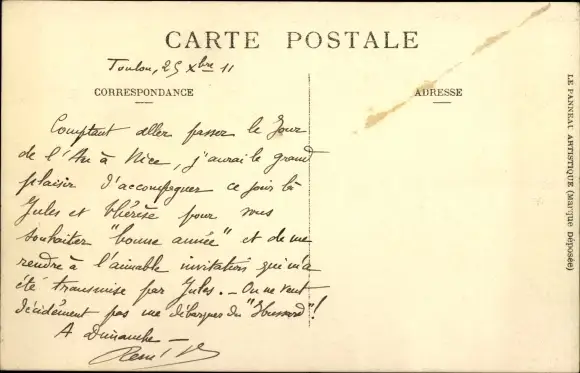 CARTE POSTALE
Toulon, 25 Xbre 11
CORRESPONDANCE
ADRESSE
Comptant aller passer le Jour
de l'An à Nice, j'aurai le grand
plaisir d'accompagner ce jour là
Jules et Thérèse pour vous
souhaiter "bonne année" et de me
rendre à l'aimable invitation qui m'a
été transmise par Jules. - On ne veut
décidément pas me débarquer du "Hussard"!
A Dimanche -
LE PANNEAU ARTISTIQUE (Marque Déposée)